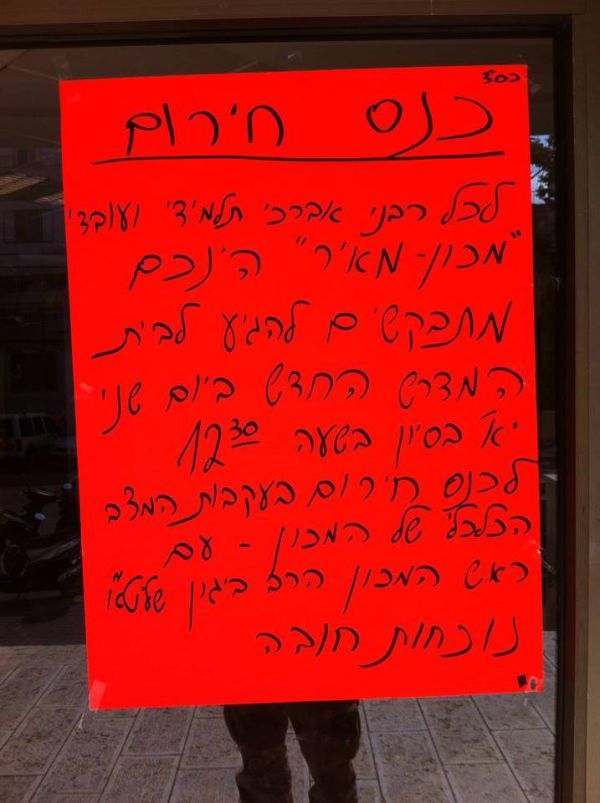 בס"ד
כנס חירום
לכל רבני אברכי תלמידי ועובדי
"מכון-מאיר" הינכם
מתבקשים להגיע לבית
המדרש החדש ביום שני
י"א בסיון בשעה 12:30
לכנס חירום בעקבות המצב
הכלכלי של המכון - עם
ראש המכון הרב ביגון שליט"א
נוכחות חובה